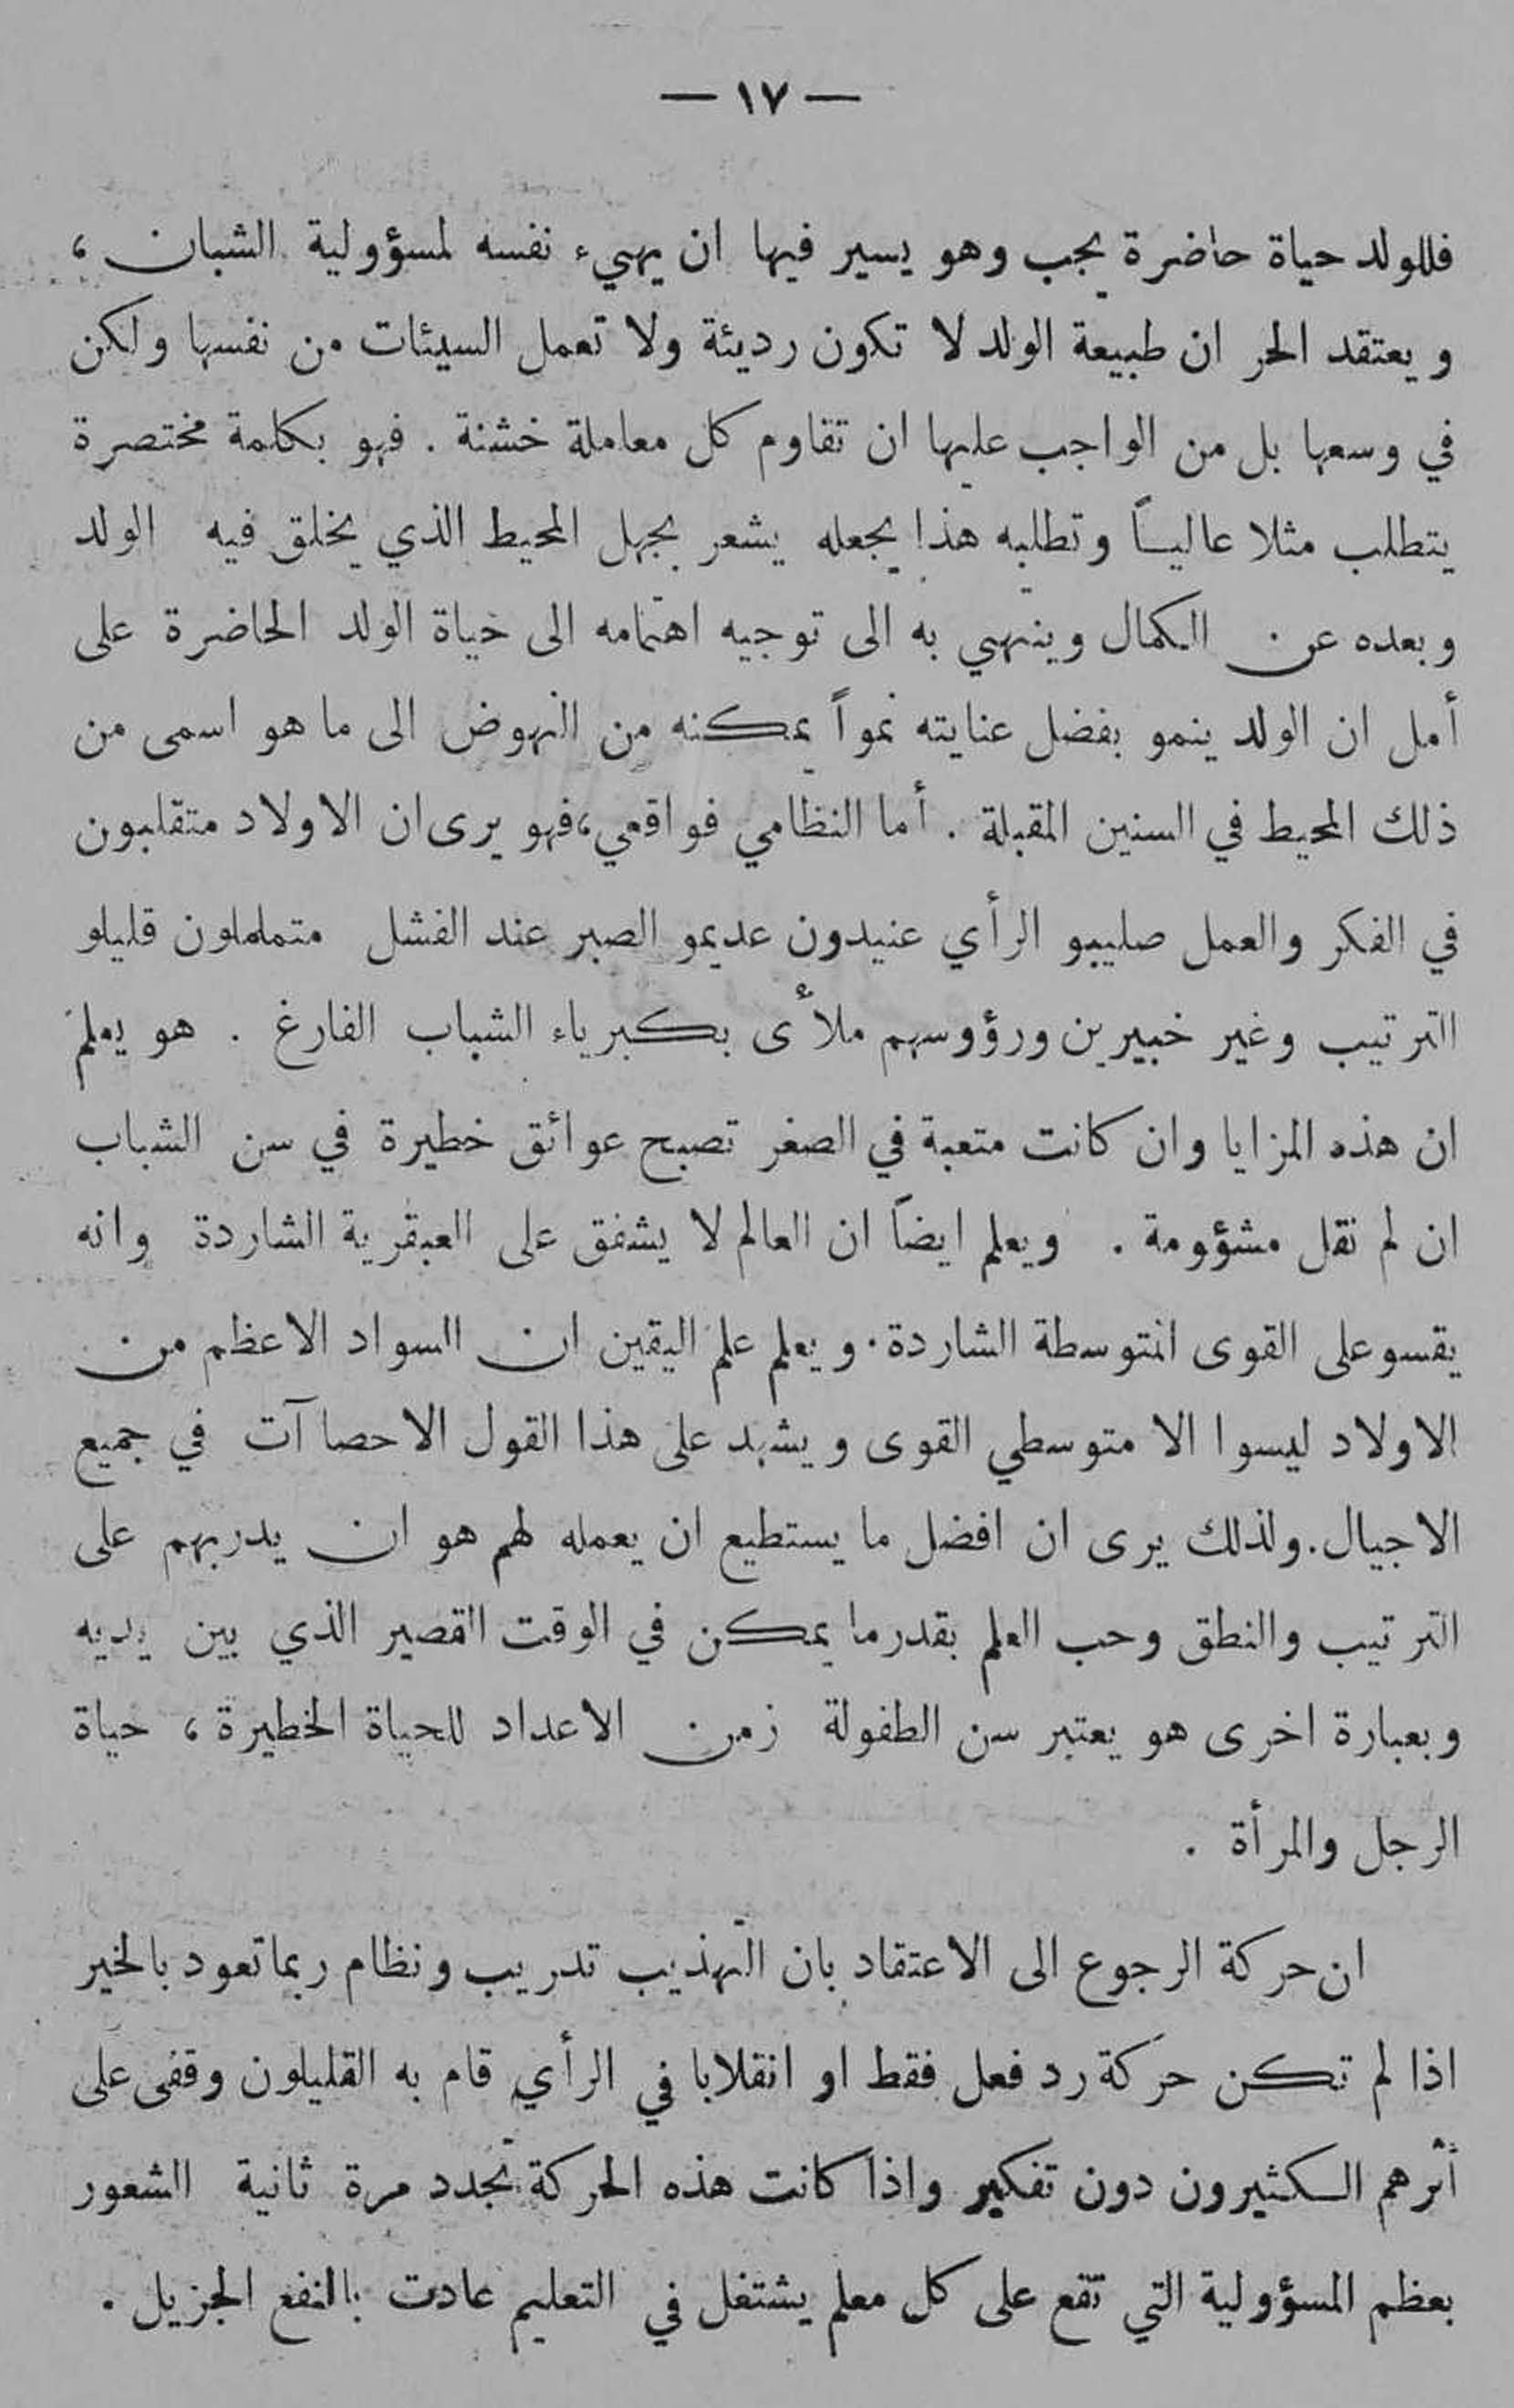 — ١٧ —
فللولد حياة حاضرة يجب وهو يسير فيها ان يهيء نفسه لمسؤولية الشبان ،
ويعتقد الحر ان طبيعة الولد لا تكون رديئة ولا تعمل السيئات من نفسها ولكن
في وسعها بل من الواجب عليها ان تقاوم كل معاملة خشنة . فهو بكلمة مختصرة
يتطلب مثلا عالياً وتطلبه هذا يجعله يشعر بجهل المحيط الذي يخلق فيه الولد
وبعده عن الكمال وينتهي به الى توجيه اهتمامه الى حياة الولد الحاضرة على
أمل ان الولد ينمو بفضل عنايته نمواً يمكنه من النهوض الى ما هو اسمى من
ذلك المحيط في السنين المقبلة . أما النظامي فواقعي، فهو يرى ان الاولاد متقلبون
في الفكر والعمل صليبو الرأي عنيدون عديمو الصبر عند الفشل متململون قليلو
الترتيب وغير خبيرين ورؤوسهم ملأى بكبرياء الشباب الفارغ . هو يعلم
ان هذه المزايا وان كانت متعبة في الصغر تصبح عوائق خطيرة في سن الشباب
ان لم نقل مشؤومة . ويعلم ايضاً ان العالم لا يشفق على العبقرية الشاردة وانه
يقسو على القوى المتوسطة الشاردة . ويعلم علم اليقين ان السواد الاعظم من
الاولاد ليسوا الا متوسطي القوى ويشهد على هذا القول الاحصاآت في جميع
الاجيال . ولذلك يرى ان افضل ما يستطيع ان يعمله لهم هو ان يدربهم على
الترتيب والنطق وحب العلم بقدر ما يمكن في الوقت القصير الذي بين يديه
وبعبارة اخرى هو يعتبر سن الطفولة زمن الاعداد للحياة الخطيرة ، حياة
الرجل والمرأة .
ان حركة الرجوع الى الاعتقاد بان التهذيب تدريب ونظام ربما تعود بالخير
اذا لم تكن حركة رد فعل فقط او انقلابا في الرأي قام به القليلون وقفى على
أثرهم الكثيرون دون تفكير واذا كانت هذه الحركة تجدد مرة ثانية الشعور
بعظم المسؤولية التي تقع على كل معلم يشتغل في التعليم عادت بالنفع الجزيل .